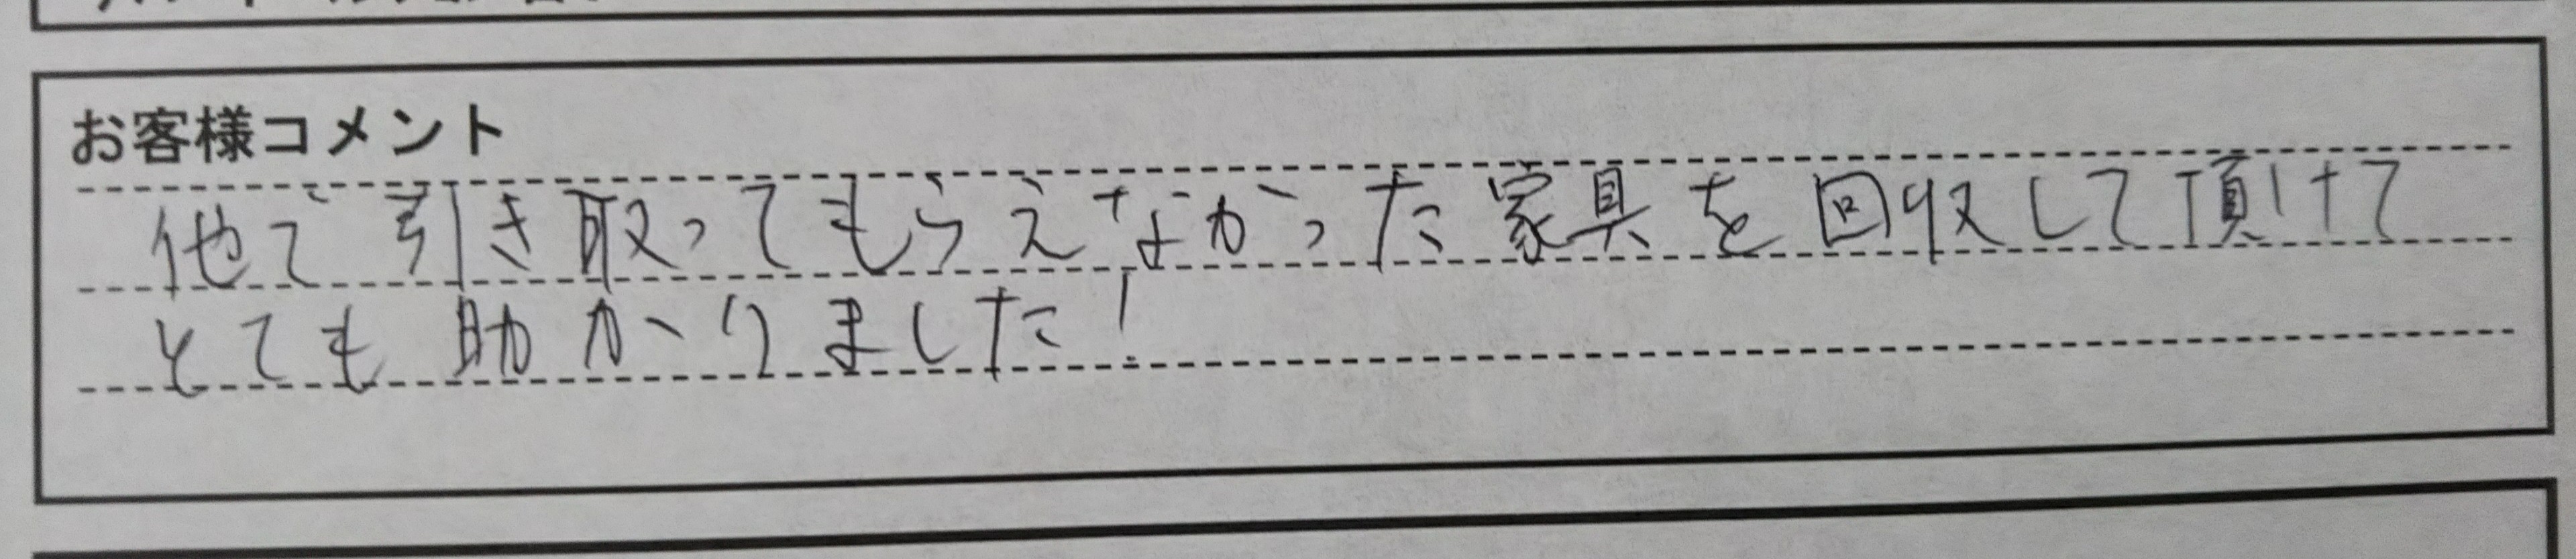 お客様コメント
他で引き取ってもらえなかった家具を回収して頂けて
とても助かりました!